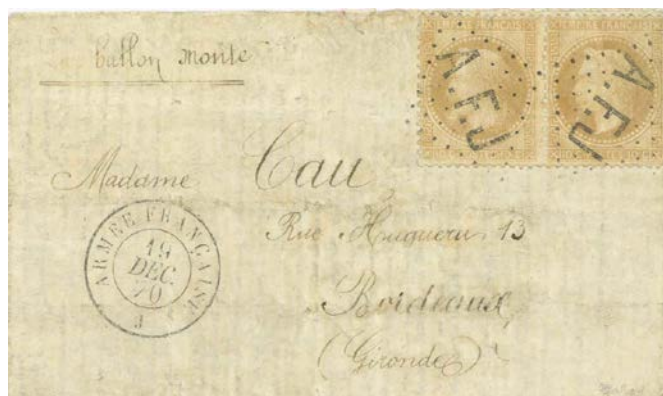 ballon monté
A.F.J
A.F.J
Madame Cau
Rue Huguerie 13
Bordeaux
(Gironde)
ARMÉE FRANÇAISE
19
DEC.
70
J